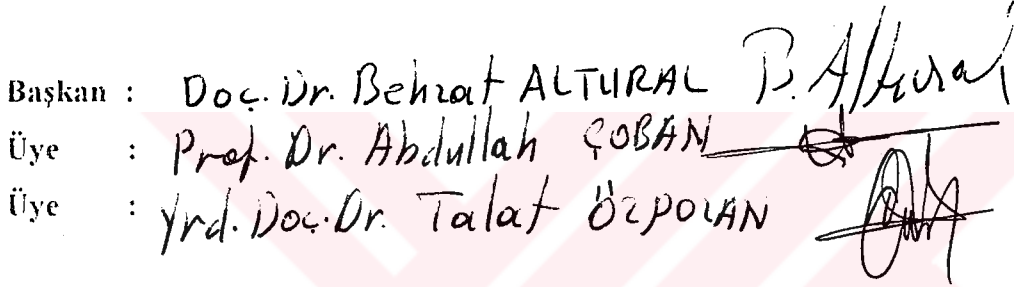 Başkan : Doç. Dr. Behzat ALTURAL B. Altural
Üye : Prof. Dr. Abdullah ÇOBAN
Üye : Yrd. Doç. Dr. Talat ÖZPOZAN